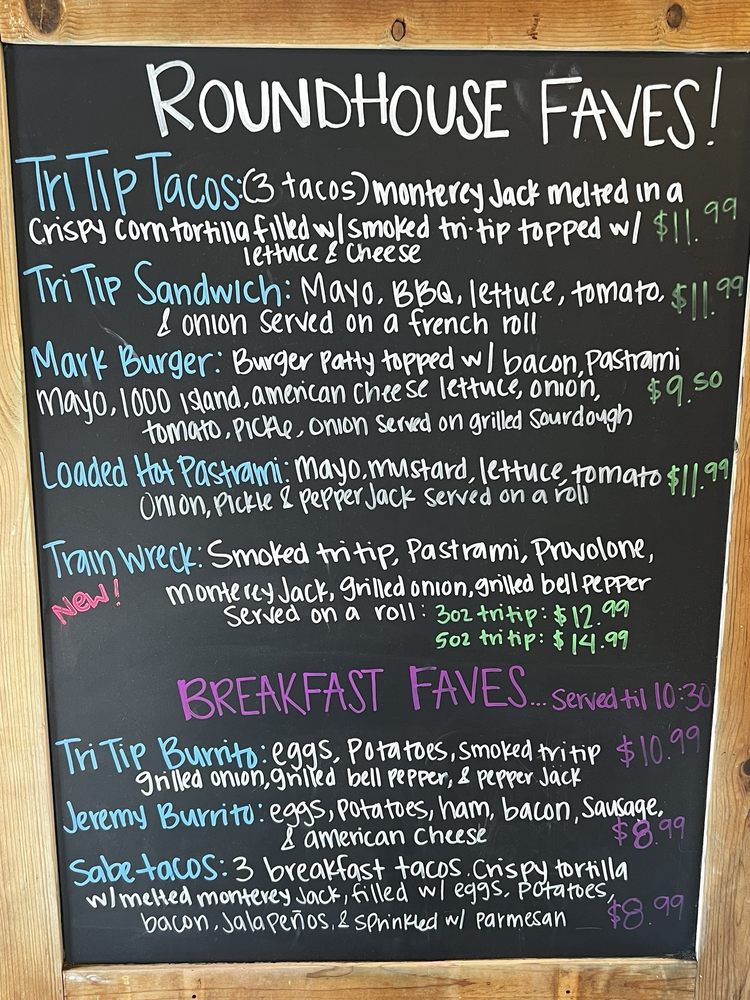 ROUNDHOUSE FAVES!
Tri Tip Tacos: (3 tacos) monterey Jack melted in a
Crispy corn tortilla filled w/ smoked tri-tip topped w/ $11.99
lettuce & cheese
Tri Tip Sandwich: Mayo, BBQ, lettuce, tomato, $11.99
& onion served on a french roll
Mark Burger: Burger Patty topped w/ bacon, Pastrami
Mayo, 1000 island, american cheese lettuce, onion, $9.50
tomato, Pickle, onion served on grilled Sourdough
Loaded Hot Pastrami: Mayo, mustard, lettuce, tomato $11.99
Onion, Pickle & Pepper Jack served on a roll
Train Wreck: Smoked tri tip, Pastrami, Provolone,
New! monterey Jack, grilled onion, grilled bell Pepper
Served on a roll: 3oz tri tip: $12.99
5oz tri tip: $14.99
BREAKFAST FAVES... Served til 10:30
Tri Tip Burrito: eggs, Potatoes, smoked tri tip $10.99
grilled onion, grilled bell Pepper, & Pepper Jack
Jeremy Burrito: eggs, potatoes, ham, bacon, Sausage,
& american cheese $8.99
Sabe-tacos: 3 breakfast tacos. Crispy tortilla
w/ melted monterey Jack, filled w/ eggs, Potatoes,
bacon, Jalapeños, & Sprinkled w/ Parmesan $8.99